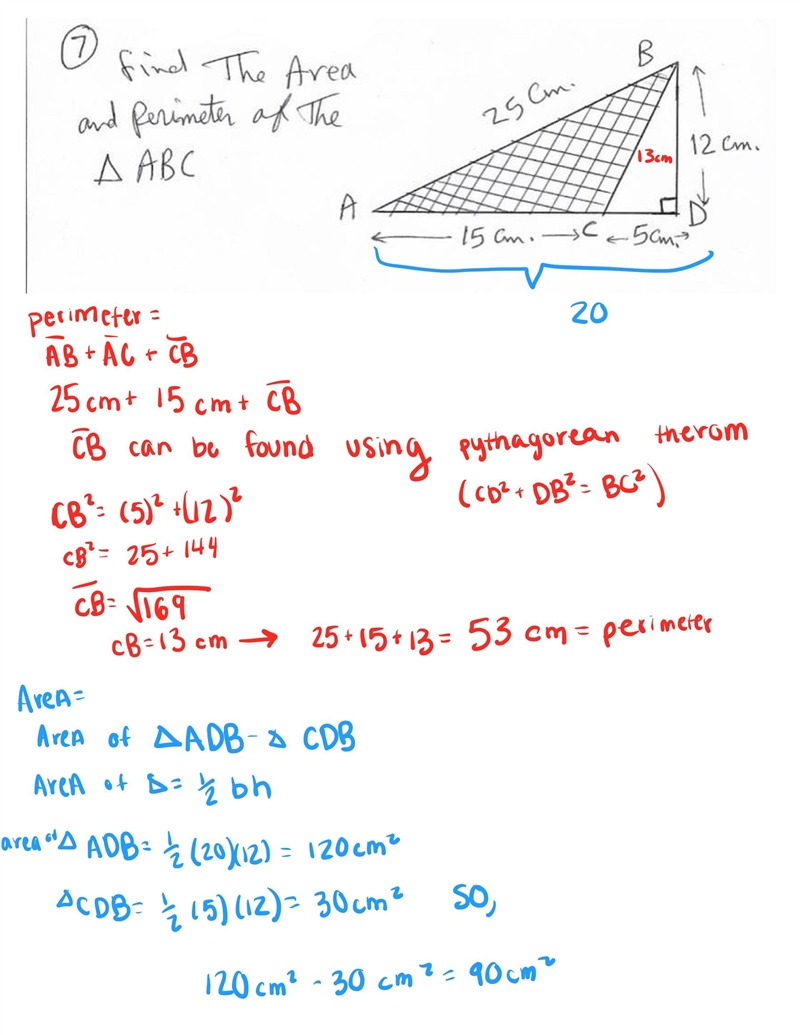 7
find The Area
and Perimeter of The
Δ ABC
B
25 Cm.
13cm
12 cm.
A
C
D
15 cm.
5cm.
20
perimeter =
A̅B̅ + A̅C̅ + C̅B̅
25 cm + 15 cm + C̅B̅
C̅B̅ can be found using pythagorean therom
(CD² + DB² = BC²)
CB² = (5)² + (12)²
CB² = 25 + 144
C̅B̅ = √169
CB = 13 cm → 25 + 15 + 13 = 53 cm = perimeter
Area =
Area of ΔADB - Δ CDB
Area of Δ = ½ bh
area of Δ ADB = ½ (20)(12) = 120 cm²
ΔCDB = ½ (5) (12) = 30 cm² SO,
120 cm² - 30 cm² = 90 cm²